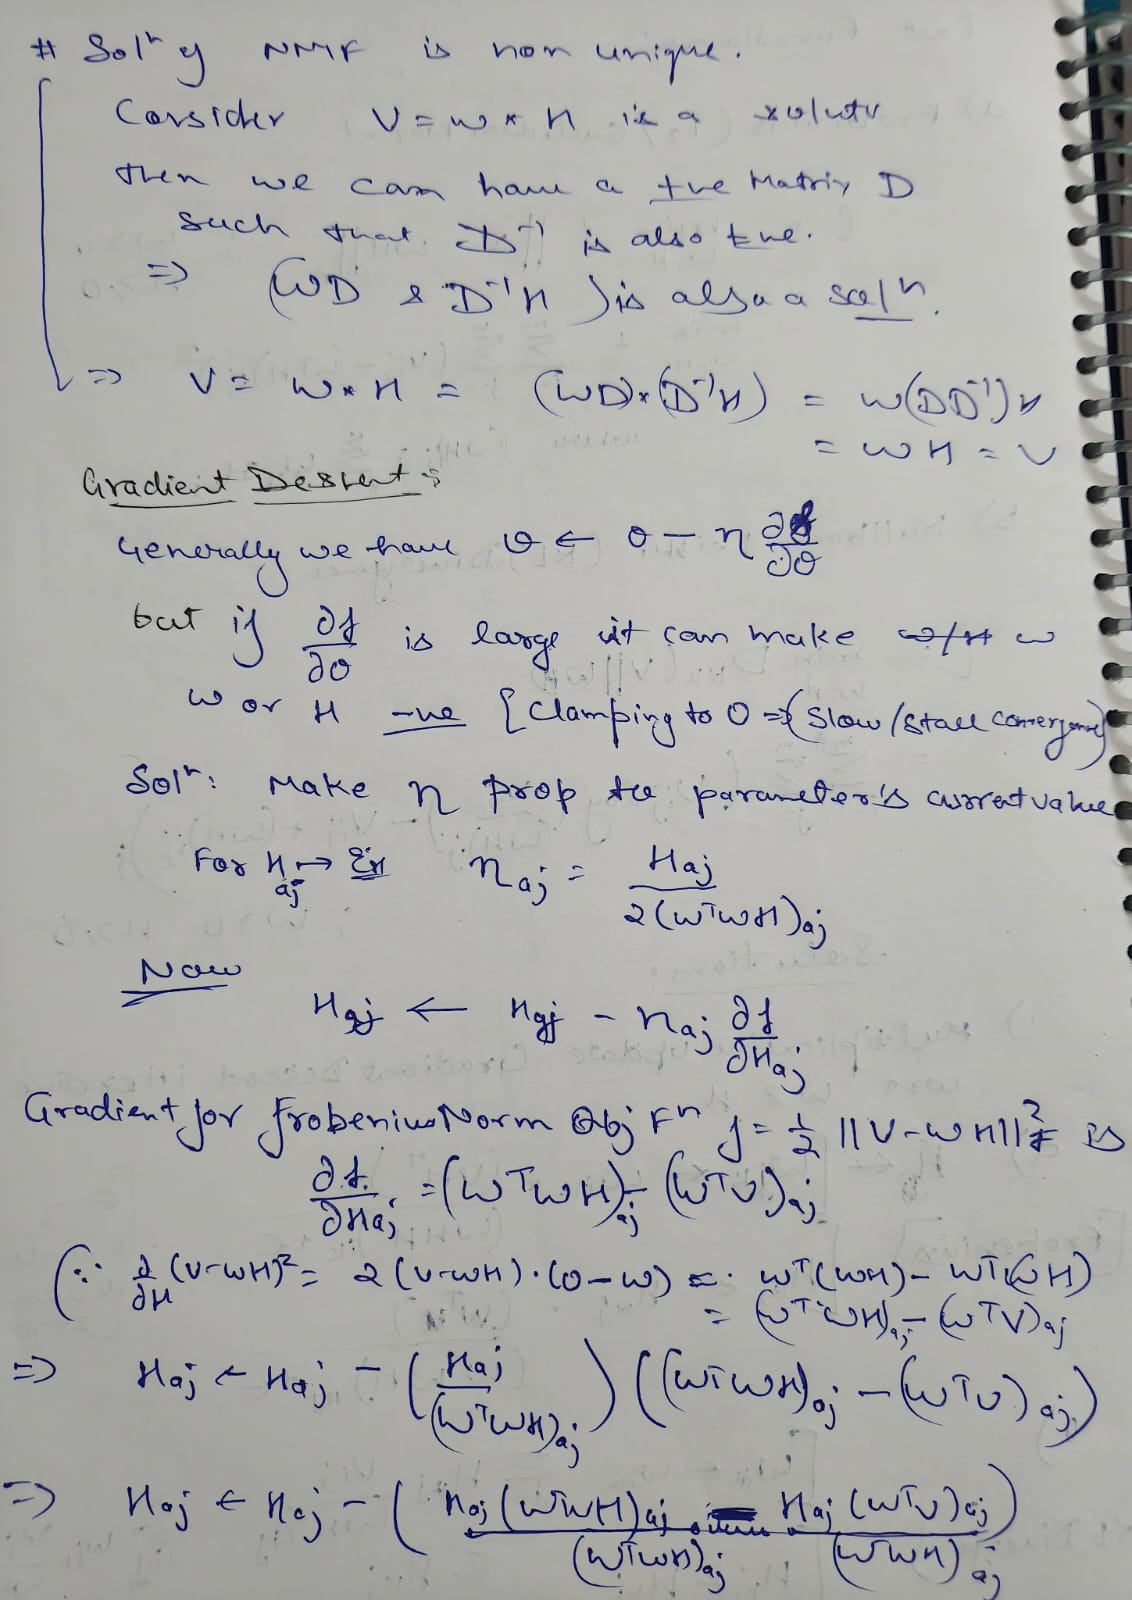 # Solⁿ of NMF is non unique.
Consider V = W * H is a solutn
then we can have a +ve Matrix D
such that D⁻¹ is also +ve.
=> (WD & D⁻¹H) is also a solⁿ.
=> V = W * H = (WD)*(D⁻¹H) = W(DD⁻¹)H
= WH = V
Gradient Descent :
Generally we have θ ← θ − η ∂f/∂θ
but if ∂f/∂θ is large it can make w
W or H -ve {Clamping to 0 => (Slow/Stall convergence)
Solⁿ: Make η prop to parameter's current value
For H_aj → η_aj = H_aj / 2(WᵀWH)_aj
Now
H_aj ← H_aj − η_aj ∂f/∂H_aj
Gradient for Frobenius Norm Obj Fⁿ f = ½ ||V − WH||²_F is
∂f/∂H_aj = (WᵀWH)_aj − (WᵀV)_aj
(∵ ∂/∂H (V−WH)² = 2(V−WH)·(0−W) = Wᵀ(WH) − Wᵀ(WH)
= (WᵀWH)_aj − (WᵀV)_aj
=> H_aj ← H_aj − (H_aj / (WᵀWH)_aj) ((WᵀWH)_aj − (WᵀV)_aj)
=> H_aj ← H_aj − (H_aj (WᵀWH)_aj / (WᵀWH)_aj − H_aj (WᵀV)_aj / (WᵀWH)_aj)